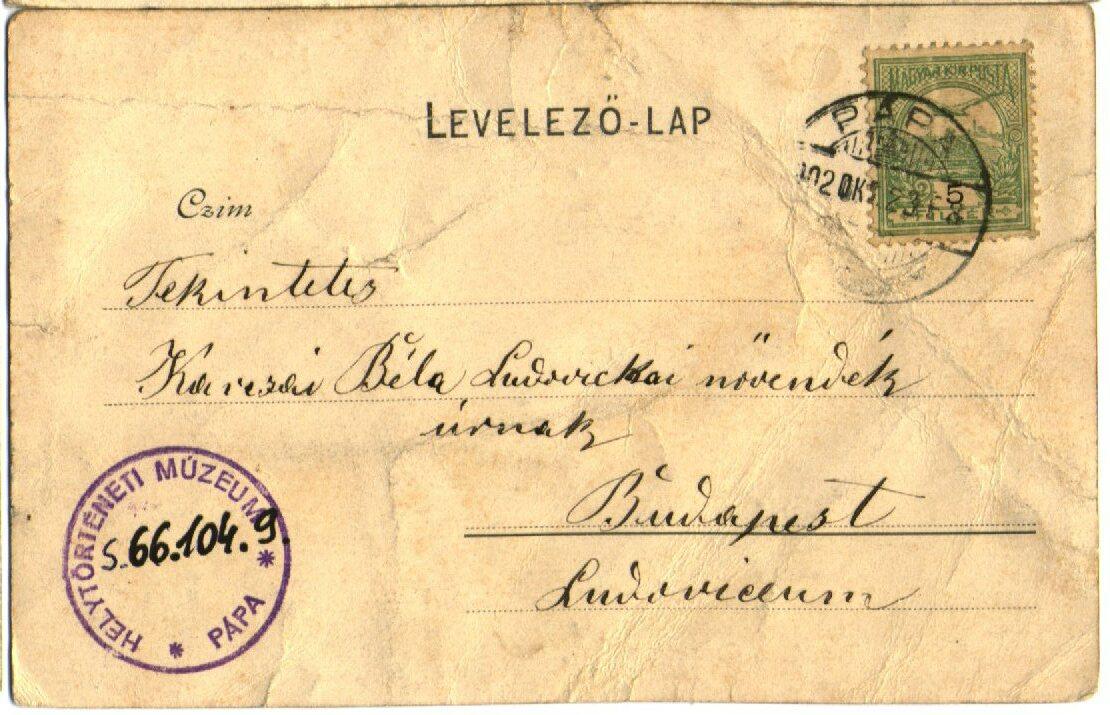 LEVELEZŐ-LAP
MAGYAR KIR. POSTA
PÁPA
5
Czim
Tekintetes
Béla Ludovickai növendék
úrnak
Budapest
Ludoviceum
HELYTÖRTÉNETI MÚZEUM
S. 66.104.9.
* PÁPA *